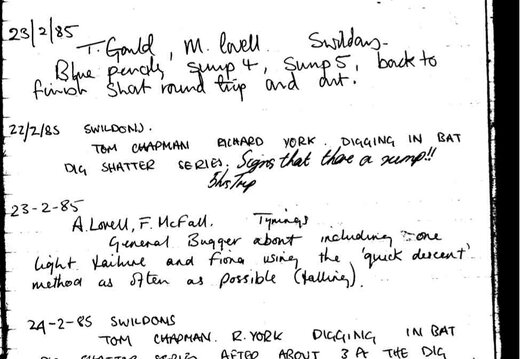 23/2/85
T. Gould, M. Lovell. Swildons.
Blue pencil, Sump 4, Sump 5, back to
finish short round trip and out.
22/2/85 SWILDONS.
TOM CHAPMAN RICHARD YORK. DIGGING IN BAT
DIG SHATTER SERIES. Signs that there a sump!!
5hrs Trip
23-2-85
A. Lovell, F. McFall. Tynings
General Bugger about including one
light failure and Fiona using the 'quick descent'
method as often as possible (falling).
24-2-85 SWILDONS
TOM CHAPMAN. R. YORK DIGGING IN BAT
DIG SHATTER SERIES AFTER ABOUT 3 PM THE DIG